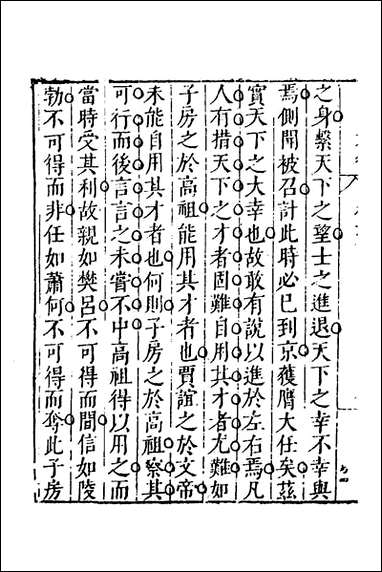 之身繫天下之望士之進退天下之幸不幸與
焉側聞被召計此時必已到京獲膺大任矣茲
實天下之大幸也故敢有說以進於左右焉凡
人有措天下之才者固難自用其才者尤難如
子房之於高祖能用其才者也賈誼之於文帝
未能自用其才者也何則子房之於高祖察其
可行而後言言之未嘗不中高祖得以用之而
當時受其利故親如樊呂不可得而間信如陵
勃不可得而非任如蕭何不可得而奪此子房